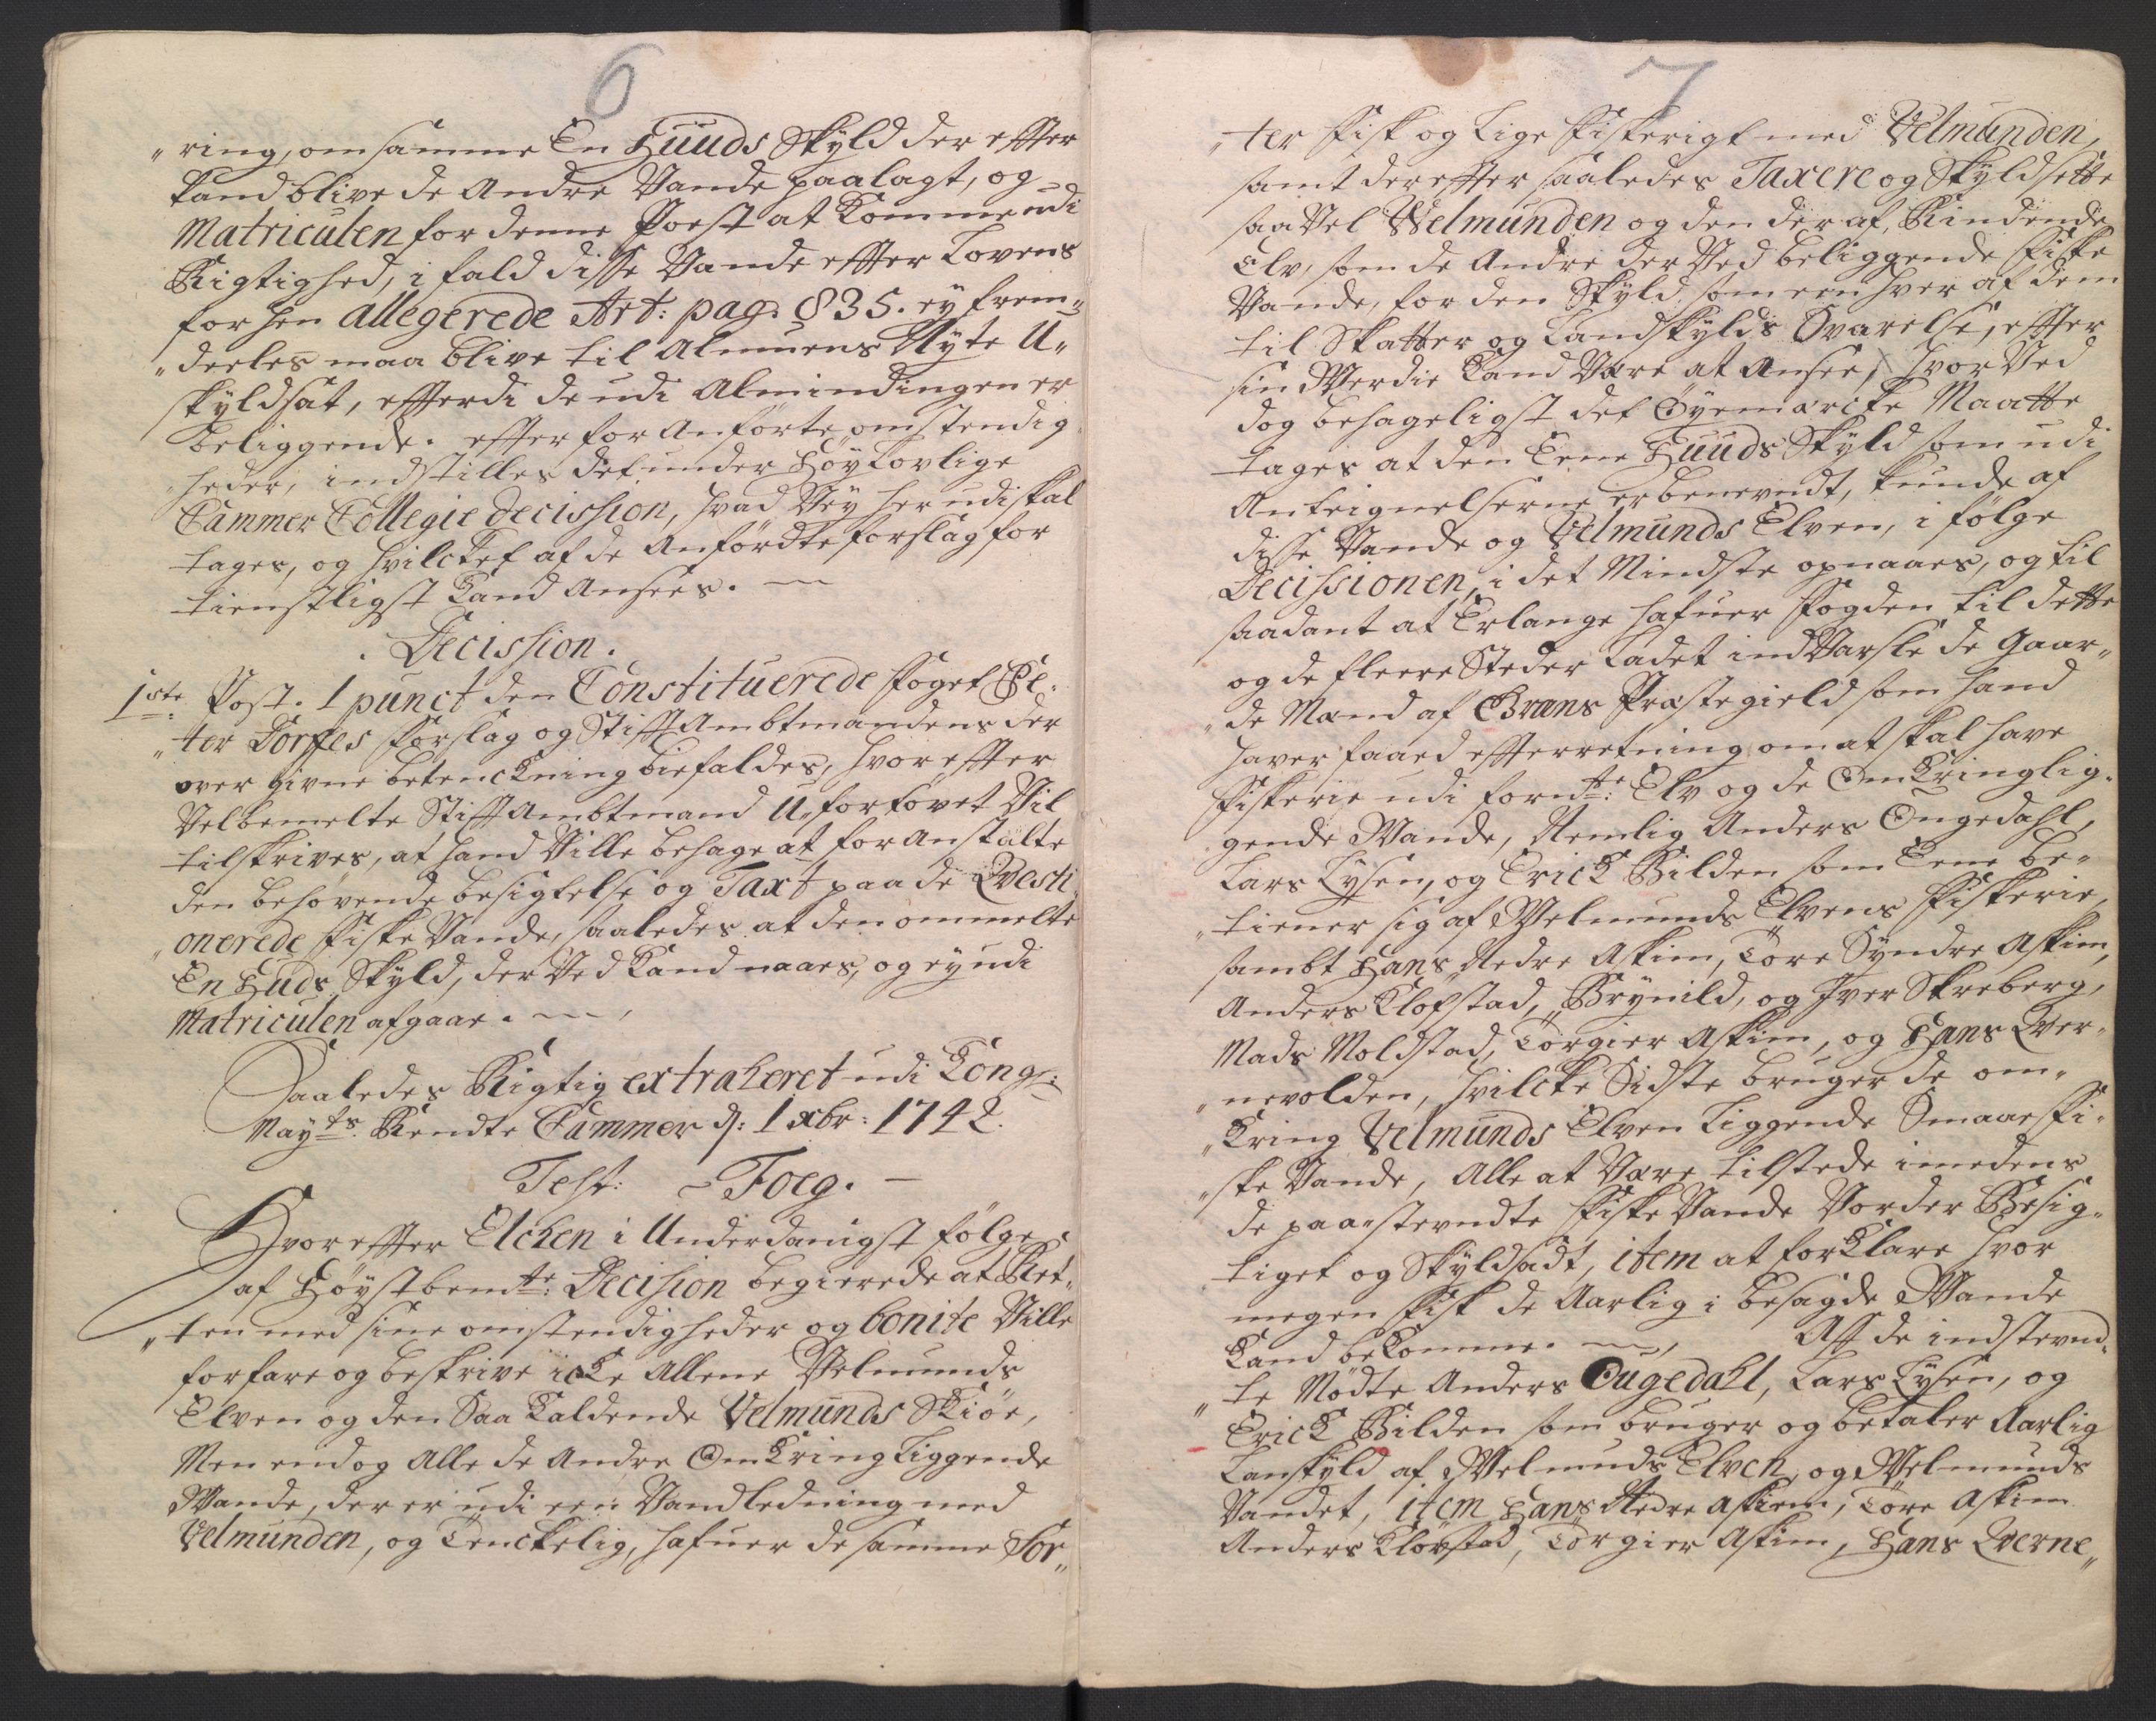 6
„ring, om samme En Huuds Skyld der effter
kand blive de Andre Vande paalagt, og
Matriculen for denne Poest at komme udi
Rigtighed, i fald disse Vande effter Lovens
for hen allegerede Art: pag. 835. ey frem„
„deeles maa blive til Almuens Nytte U„
skyldsat, efferdi de udi Almindingen er
beliggende. effter for Anførte omstendig„
heder, indstilles det under Höylovlige
Cammer Collegie decission, hvad Vey her udi skal
tages, og hvilcket af de Anfördte forslag for
tienstligst kand Ansees.
. Decission.
1ste Post. 1 punct den Constituerede Foget Pe„
„ter Dorffes Forslag og Stiftambtmandens der
over givne betenckning biefaldes, hvor effter
Velbemelte Stiftambtmand U„fortövet Vil
tilskrives, at hand Ville behage at for Anstalte
den behövende besigtelse og Taxt paa de Qvesti„
„onerede Fiske Vande, saaledes at den ommelte
En Huds Skyld, der Ved kand naaes, og ey udi
Matriculen afgaae.
Saaledes Rigtig extraheret udi Kong:
Mayts. Rendte Cammer d: 1 xbr: 1742.
Test: Foeg.
Hvor effter Elchen i Underdanigst fölge
af Höystbemte: Decision begierede at Ret„
„ten med sine omstendigheder og bonite Ville
forfare og beskrive icke Allene Velmunds
Elven og den Saa kaldende Velmunds Skiöe,
Men end og Alle de Andre Omkring liggende
Vande, der er udi een Vandledning med
Velmunden, og Tenckelig, hafuer de samme Sor„
7
„ter Fisk og lige Fiskerigt med Velmunden,
samt der effter saaledes Taxere og Skyldsette
saa Vel Velmunden og den der af, Rindende
Elv, som de Andre der Ved beliggende Fiske
Vande, for den Skyld som een hver af dem
til Skatter og Landskylds Svarelse, effter
sin Werdie kand Være at Ansee, hvor Ved
dog behageligst det Öyemærcke Maatte
tages at den Eene Huuds Skyld som udi
Antegnelserne er benevndt, kunde af
disse Vande og Velmunds Elven, i fölge
Decissionen, i det Mindste opnaaes, og til
saadant at Erlange hafuer Fogden til dette
og de fleere Steder ladet ind Varsle de Gaar„
„de Mænd af Brans Præstegield som hand
haver faaed efferretning om at skal have
Fiskerie udi fornte: Elv og de Omkringlig„
gende Wande, Nemlig Anders Ougedahl,
Lars Lysen, og Erick Bilden som Eene be„
„tiener sig af Welmunds Elvens Fiskerie,
sambt Hans Nedre Askim, Tore Syndre Askim,
Anders Klofstad, Brynild, og Iver Skreberg,
Mads Moldstad, Torgier Askim, og Hans Qver„
„nevolden, hvilcke Sidste bruger de om„
„kring Velmunds Elven liggende Smaae Fi„
„ske Vande, Alle at Være tilstede imedens
de paa„stevndte Fiske Vande Vorder Besig„
tiget og Skyldsadt, item at forklare hvor
megen Fisk de Aarlig i besagde Wande
kand bekomme. Aff de indstevnd„
„te Mödte Anders Ougedahl, Lars Lysen, og
Erick Bilden som bruger og betaler Aarlig
Lanskyld af Welmunds Elven, og Welmunds
Vandet, item Hans Nedre Askiem, Tore Askim
Anders Klövstad, Torgier Askim, Hans Qverne„